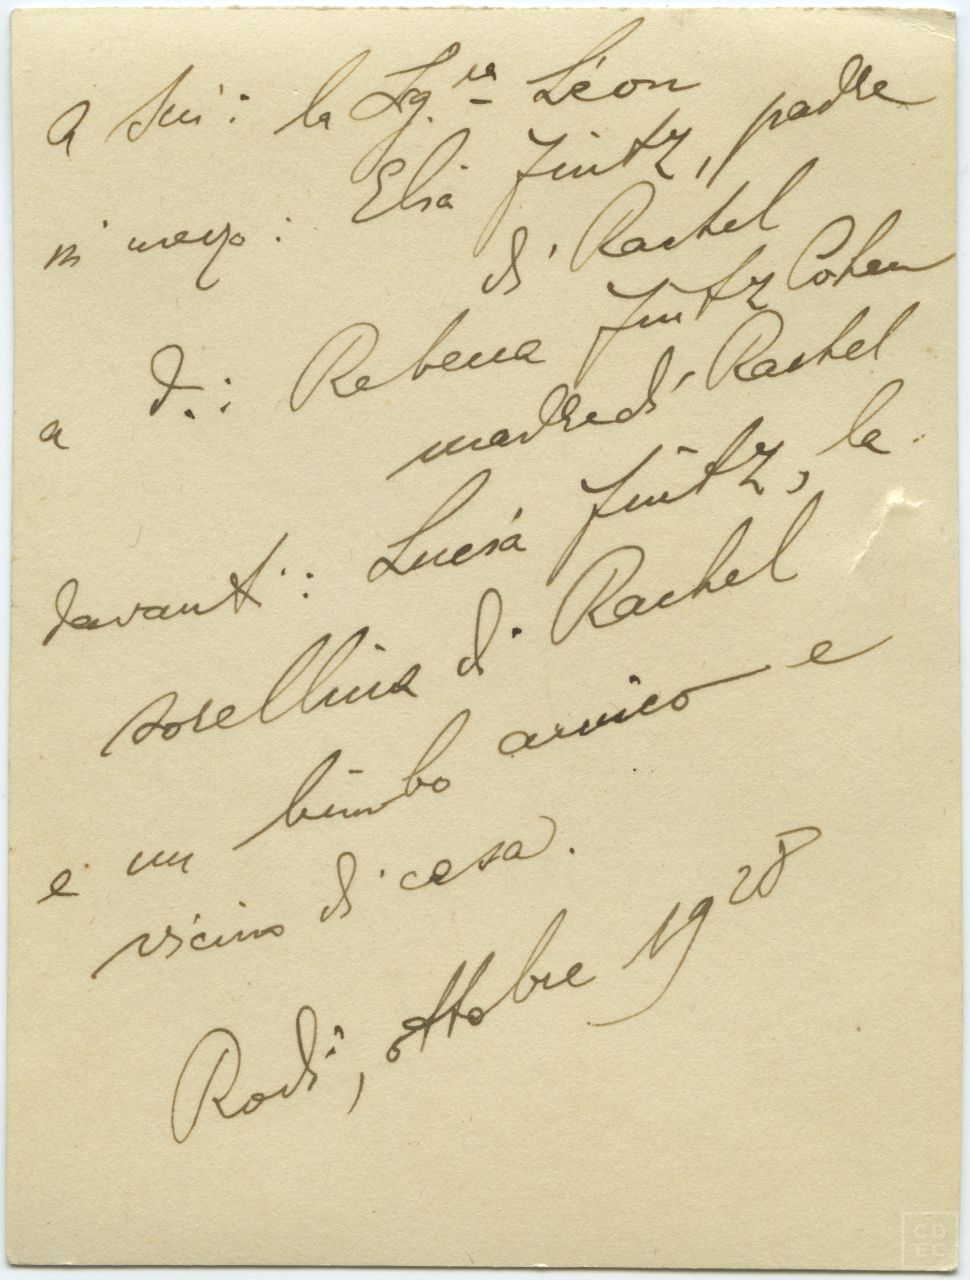 a sin: la Sg.ra Léon
in mezzo: Elia Fintz, padre
di Rachel
a d.: Rebecca Fintz Cohen
madre di Rachel
davanti: Lucia Fintz, la
sorellina di Rachel
e un bimbo amico e
vicino di casa.
Rodi, ottobre 1928
CD
EC